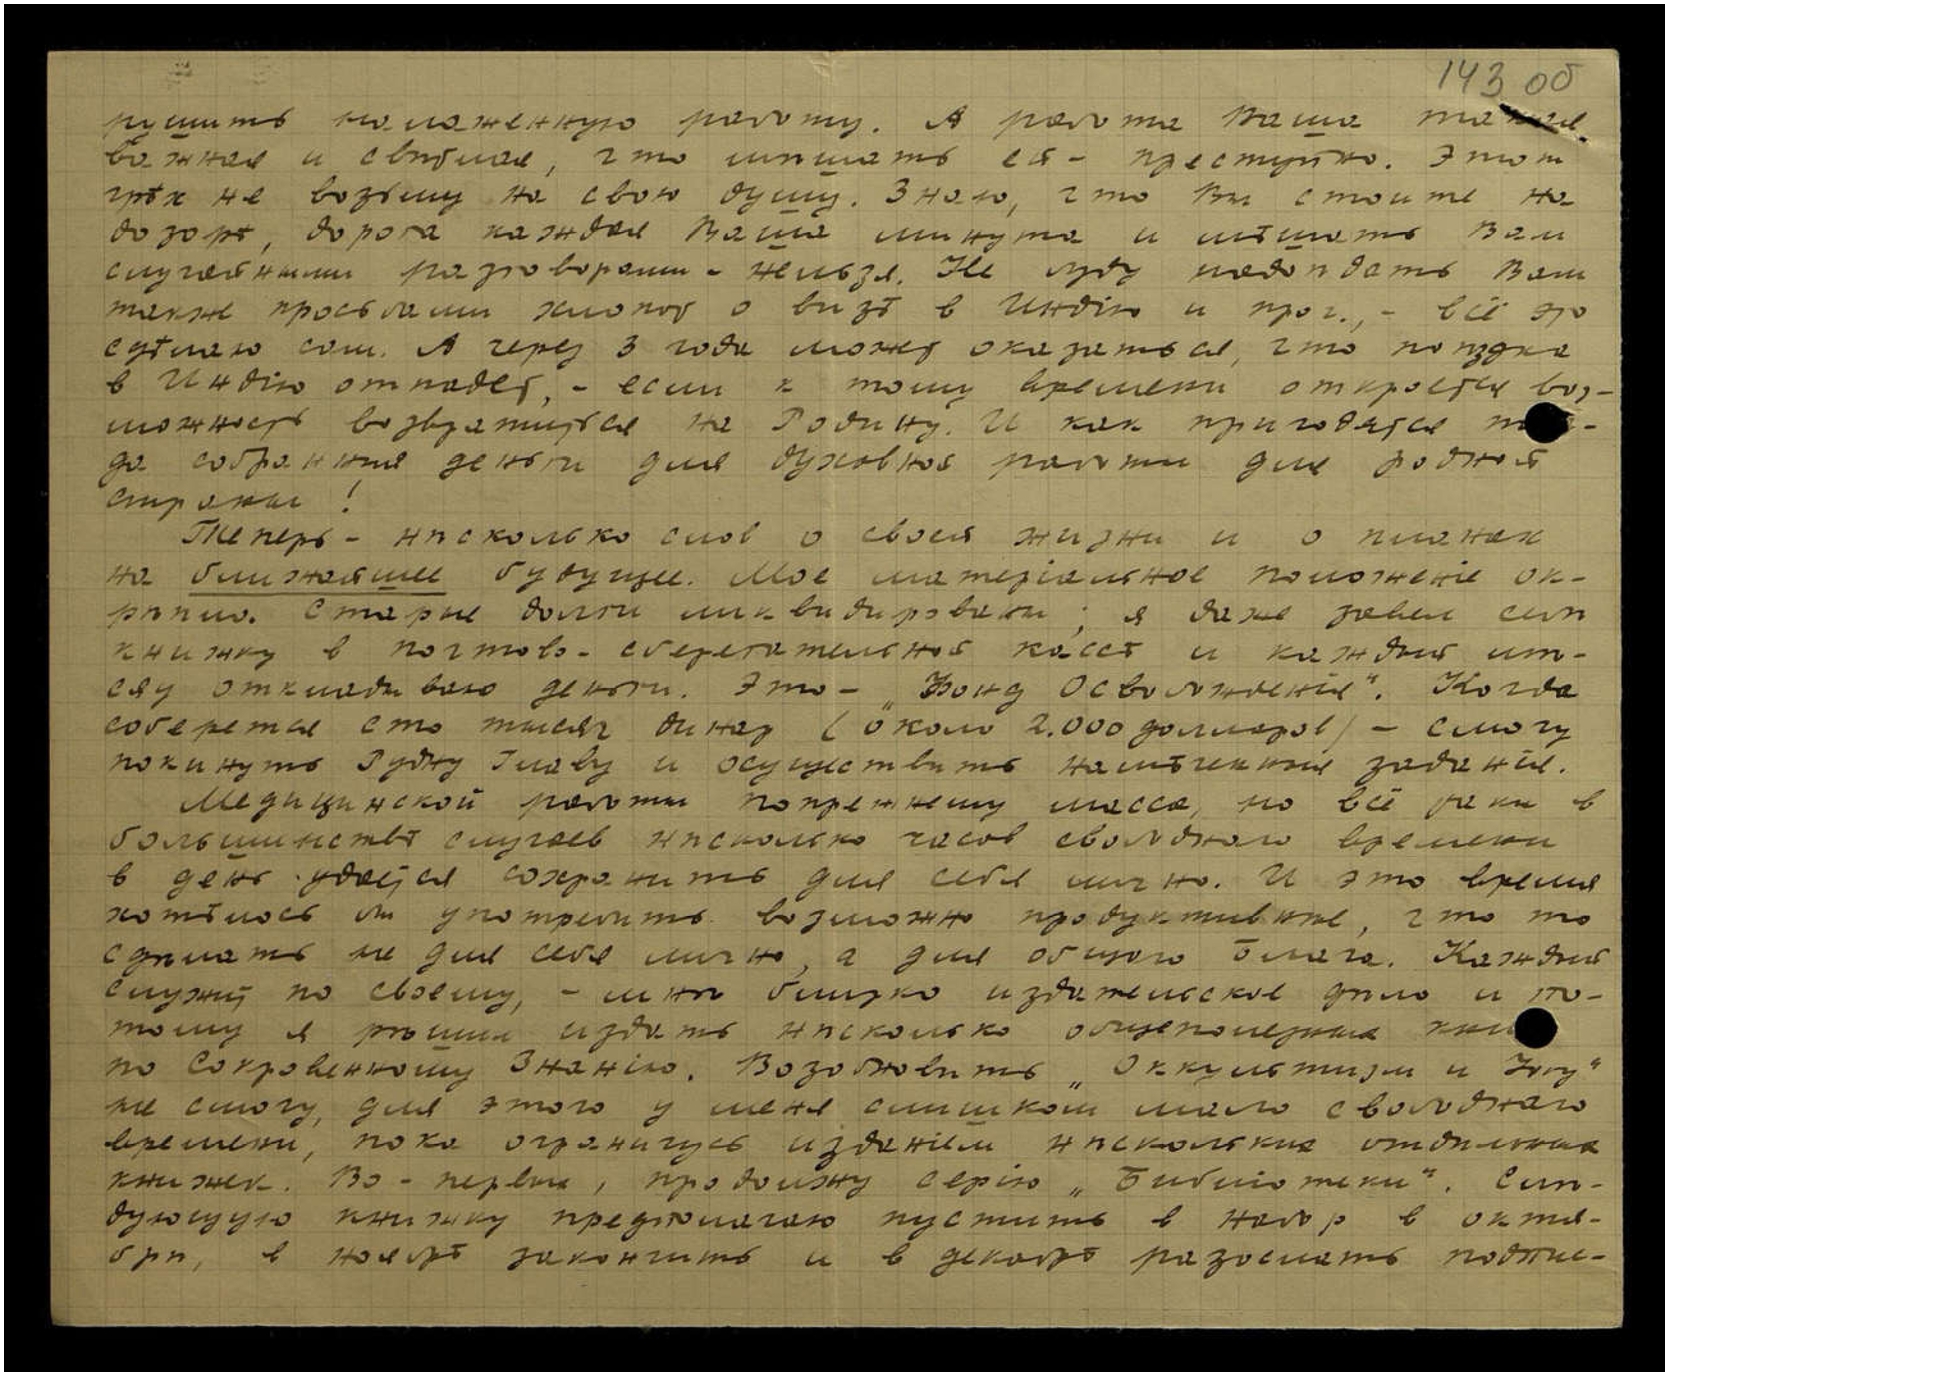 143 об
рушить налаженную работу. А работа Ваша такая
важная и свѣтлая, что мѣшать ей - преступно. Этот
грѣх не возьму на свою душу. Знаю, что Вы стоите на
дозорѣ, дорога каждая Ваша минута и мѣшать Вам
случайными разговорами - нельзя. Не буду надоѣдать Вам
также просьбами хлопот о визѣ в Индію и проч., - всё это
сдѣлаю сам. А через 3 года может оказаться, что поѣздка
в Индію отпадет, - если к тому времени откроется воз-
можность возвратиться на Родину. И как пригодятся
да собранныя деньги для духовной работы для родной
страны!
Теперь - нѣсколько слов о своей жизни и о планах
на ближайшее будущее. Мое матеріальное положеніе ок-
рѣпло. Старые долги ликвидированы; я даже завел себѣ
книжку в почтово-сберегательной кассѣ и каждый мѣ-
сяц откладываю деньги. Это - „Фонд Освобожденія“. Когда
соберется сто тысяч динар (около 2.000 долларов) - смогу
покинуть Рудну Главу и осуществить намѣченныя заданія.
Медицинской работы попрежнему масса, но всё таки в
большинствѣ случаев нѣсколько часов свободного времени
в день удается сохранить для себя лично. И это время
хотѣлось бы употребить возможно продуктивнѣе, что то
сдѣлать не для себя лично, а для общаго Блага. Каждый
служит по своему, - мнѣ близко издательское дѣло и по-
тому я рѣшил издать нѣсколько общеполезных
по Сокровенному Знанію. Возобновить „Оккультизм и Іогу“
не смогу, для этого у меня слишком мало свободнаго
времени, пока ограничусь изданіем нѣскольких отдѣльных
книжек. Во-первых, продолжу серію „Библіотеки“. Слѣ-
дующую книжку предполагаю пустить в набор в октя-
брѣ, в ноябрѣ закончить и в декабрѣ разослать подпис-